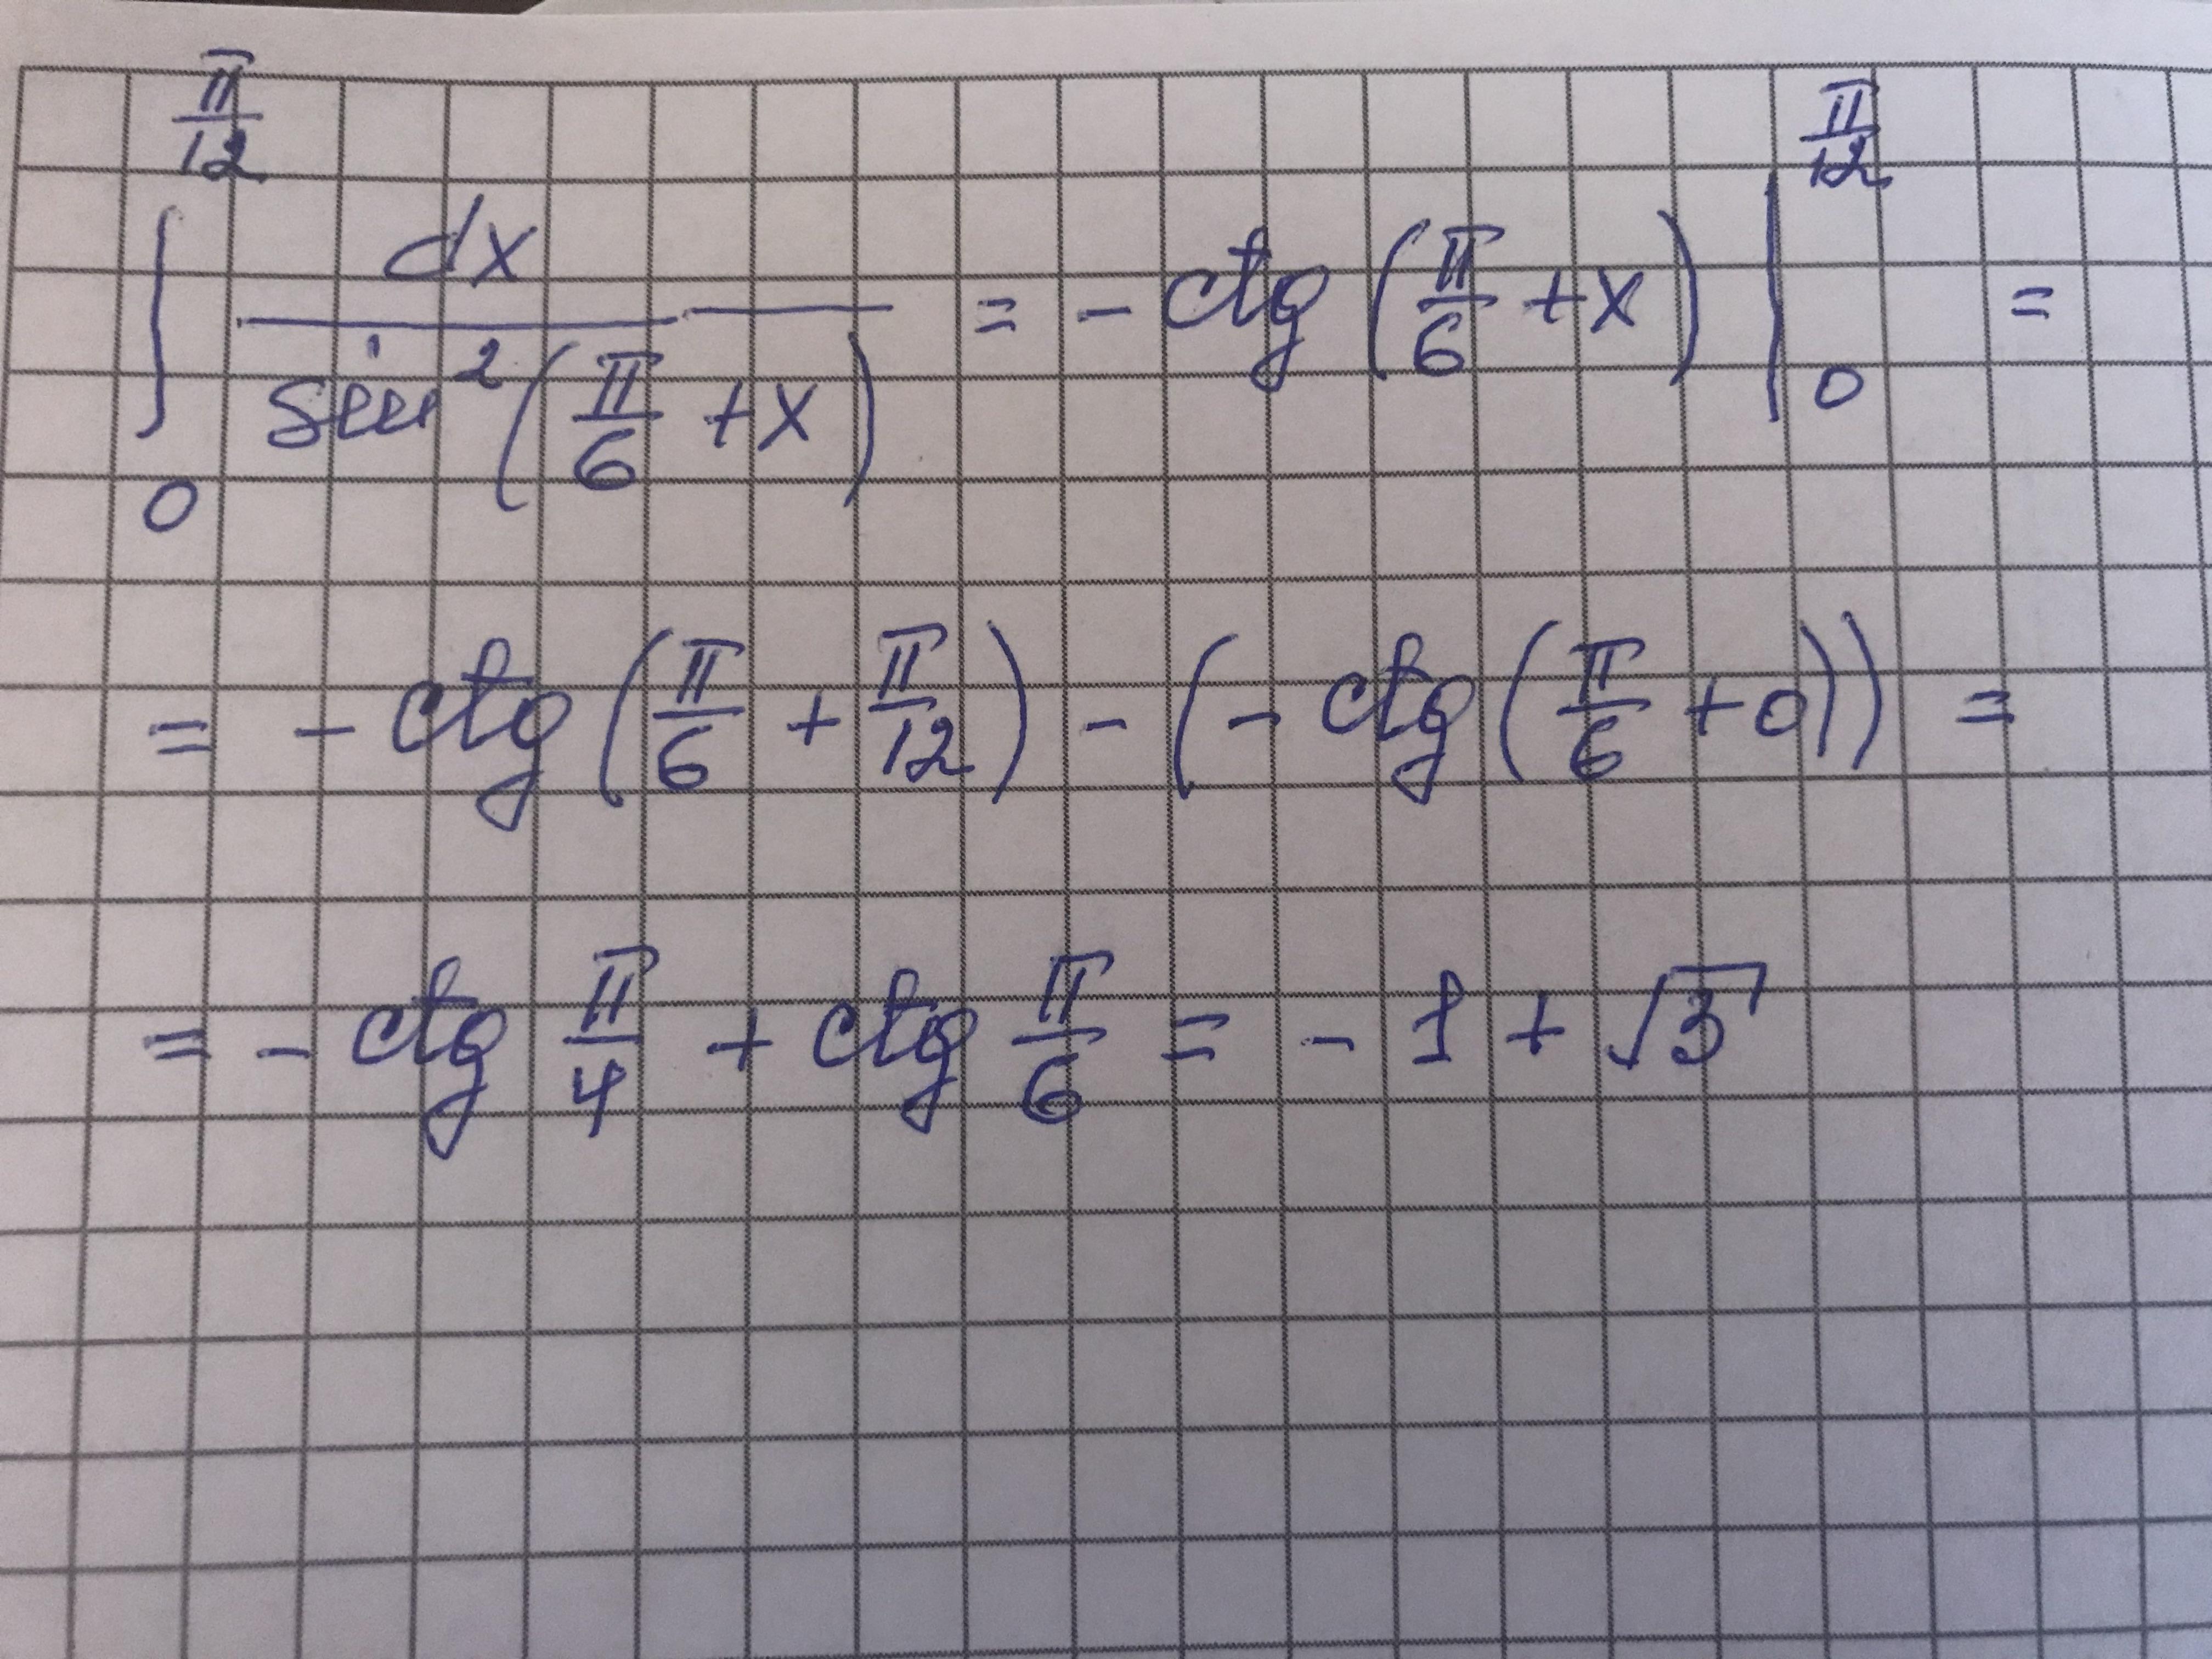 ∫₀^(π/12) dx / sin²(π/6 + x) = - ctg (π/6 + x) |₀^(π/12) =
= - ctg (π/6 + π/12) - (- ctg (π/6 + 0)) =
= - ctg π/4 + ctg π/6 = - 1 + √3